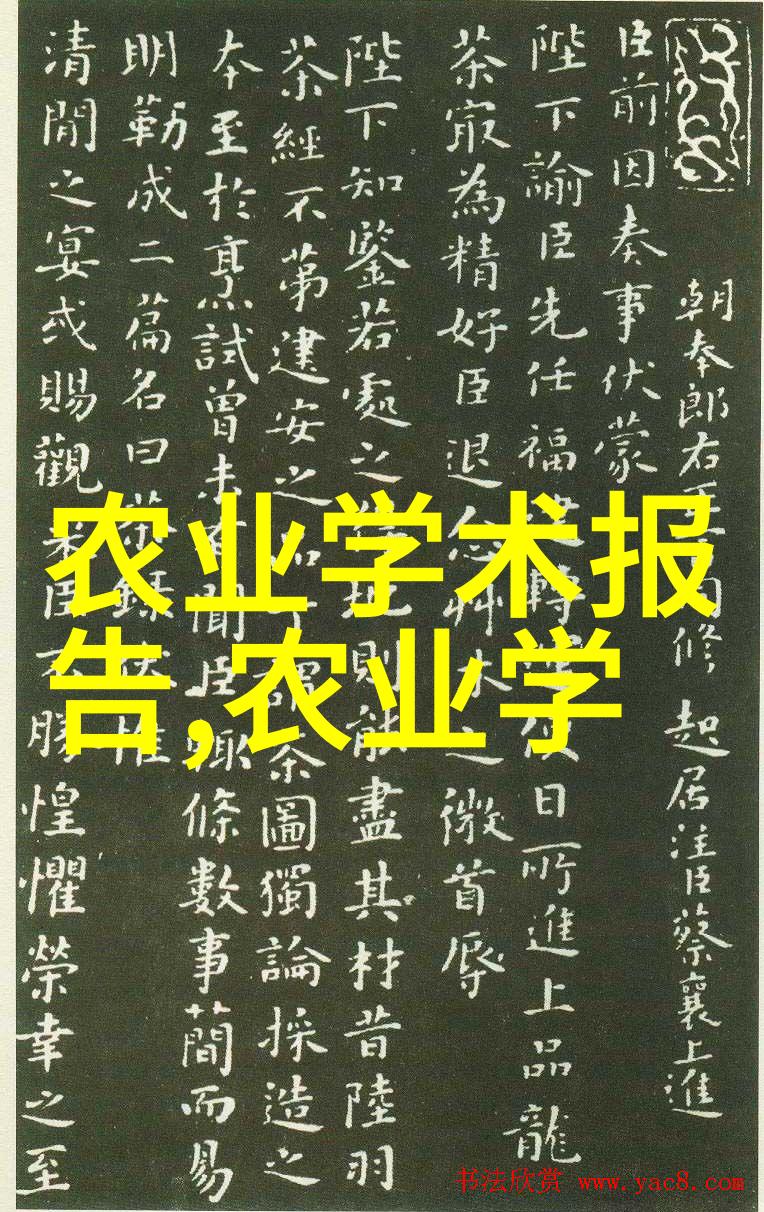 朝奉郎右正言同修起居注臣蔡襄上進
臣前因奏事伏蒙
陛下諭臣先任福建轉運使日所進上品龍
茶冣為精好臣退念艸木之微首辱
陛下知鑒若處之得地則能盡其材昔陸羽
茶經不第建安之品丁謂茶圖獨論採造之
本至於烹試曾未有聞臣輒條數事簡而易
明勒成二篇名曰茶錄伏惟
清閒之宴或賜觀采臣不勝惶懼榮幸之至
农业学术报
告,农业学
书法欣赏 www.yac8.com